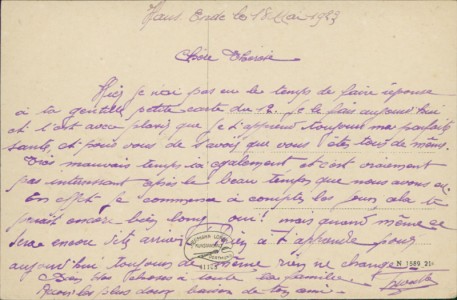 Haus Ende le 18 Mai 1923
Chère Thérèse
Hier je n'ai pas eu le temps de faire réponse
à ta gentille petite carte du 12. Je le fais aujourd'hui
et c'est avec plaisir que je t'apprend toujours ma parfaite
santé, et pour vous de savoir que vous êtes tous de même.
Très mauvais temps ici également et c'est vraiment
pas intéressant après le beau temps que nous avons eu.
En effet je commence à compter les jours cela te
paraît encore bien long, oui! mais quand même ce
sera encore vite arrivé. Rien à t'apprendre pour
aujourd'hui toujours de même rien ne change
Bien des choses à toute la famille.
Reçois les plus doux baisers de ton ami.
N 1589 21